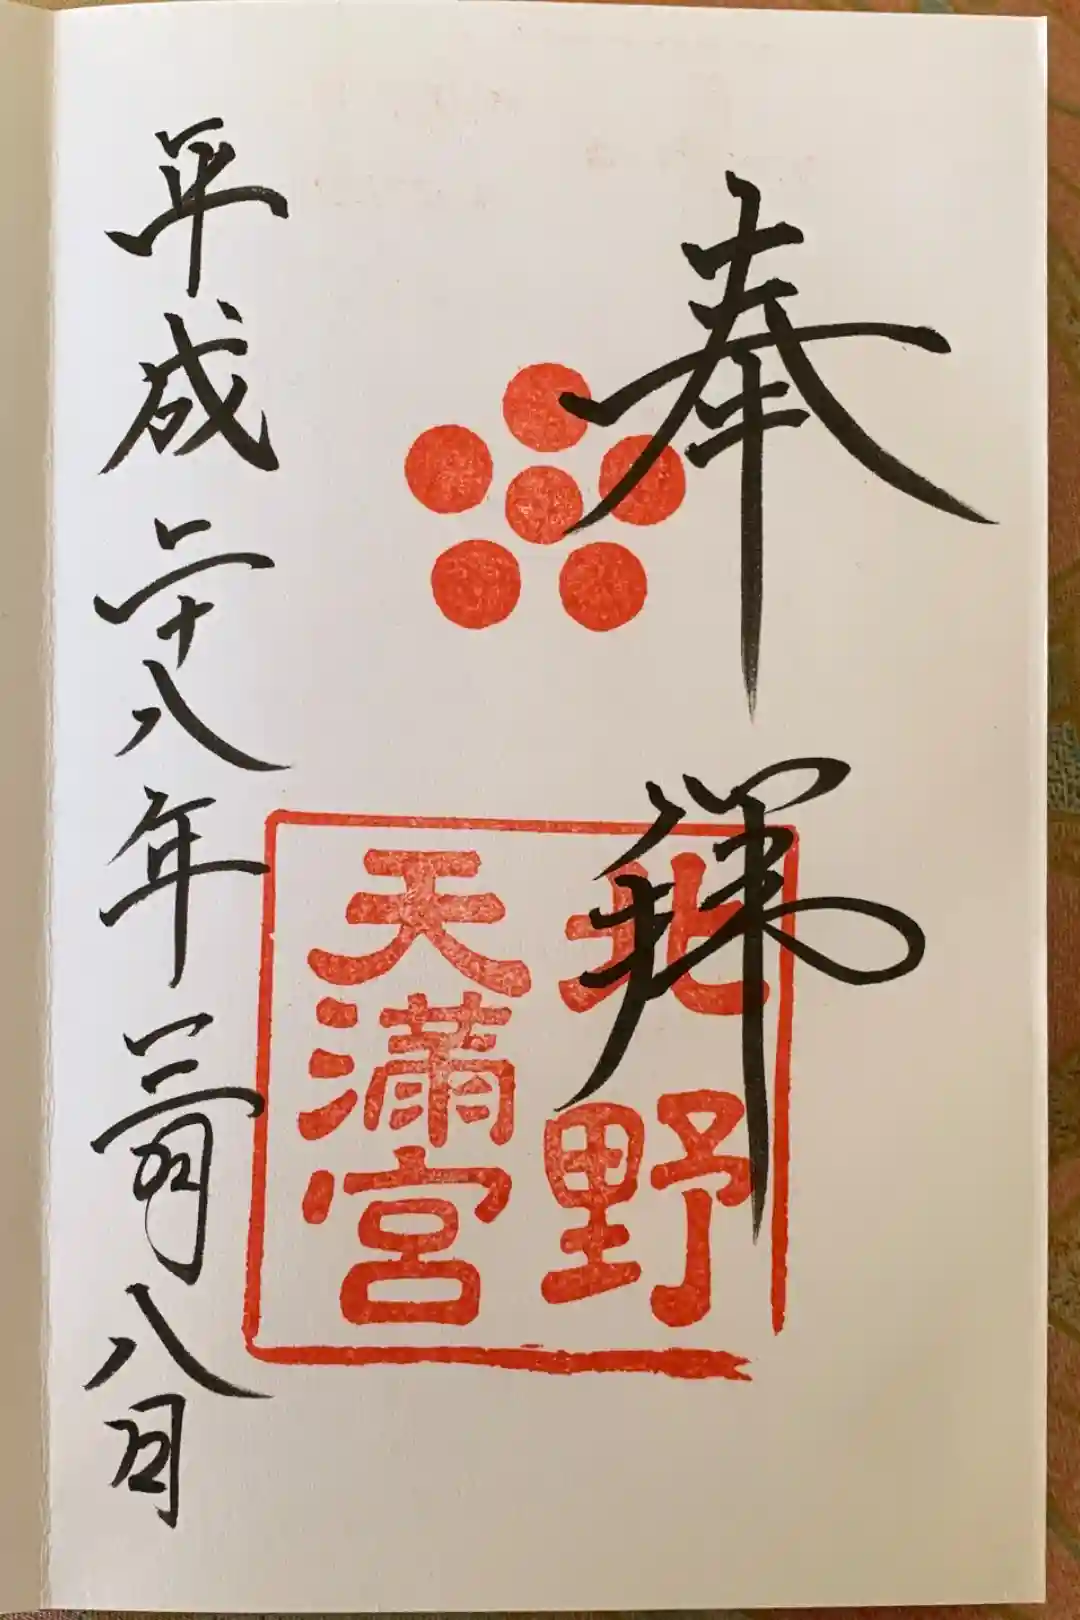 奉拜
北野
天満宮
平成二十八年三月八日